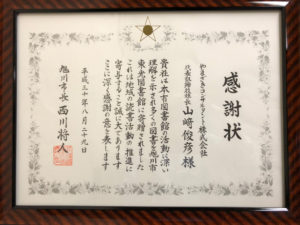 感謝状
やまざきコンサルタント株式会社
代表取締役社長 山﨑俊彦様
貴社は本市図書館の活動に深い
理解を示され多くの図書を旭川市
東光図書館に寄贈されました
これは地域の読書活動の推進に
寄与すること誠に大であります
ここに深く感謝の意を表します
平成三十年八月二十九日
旭川市長 西川将人